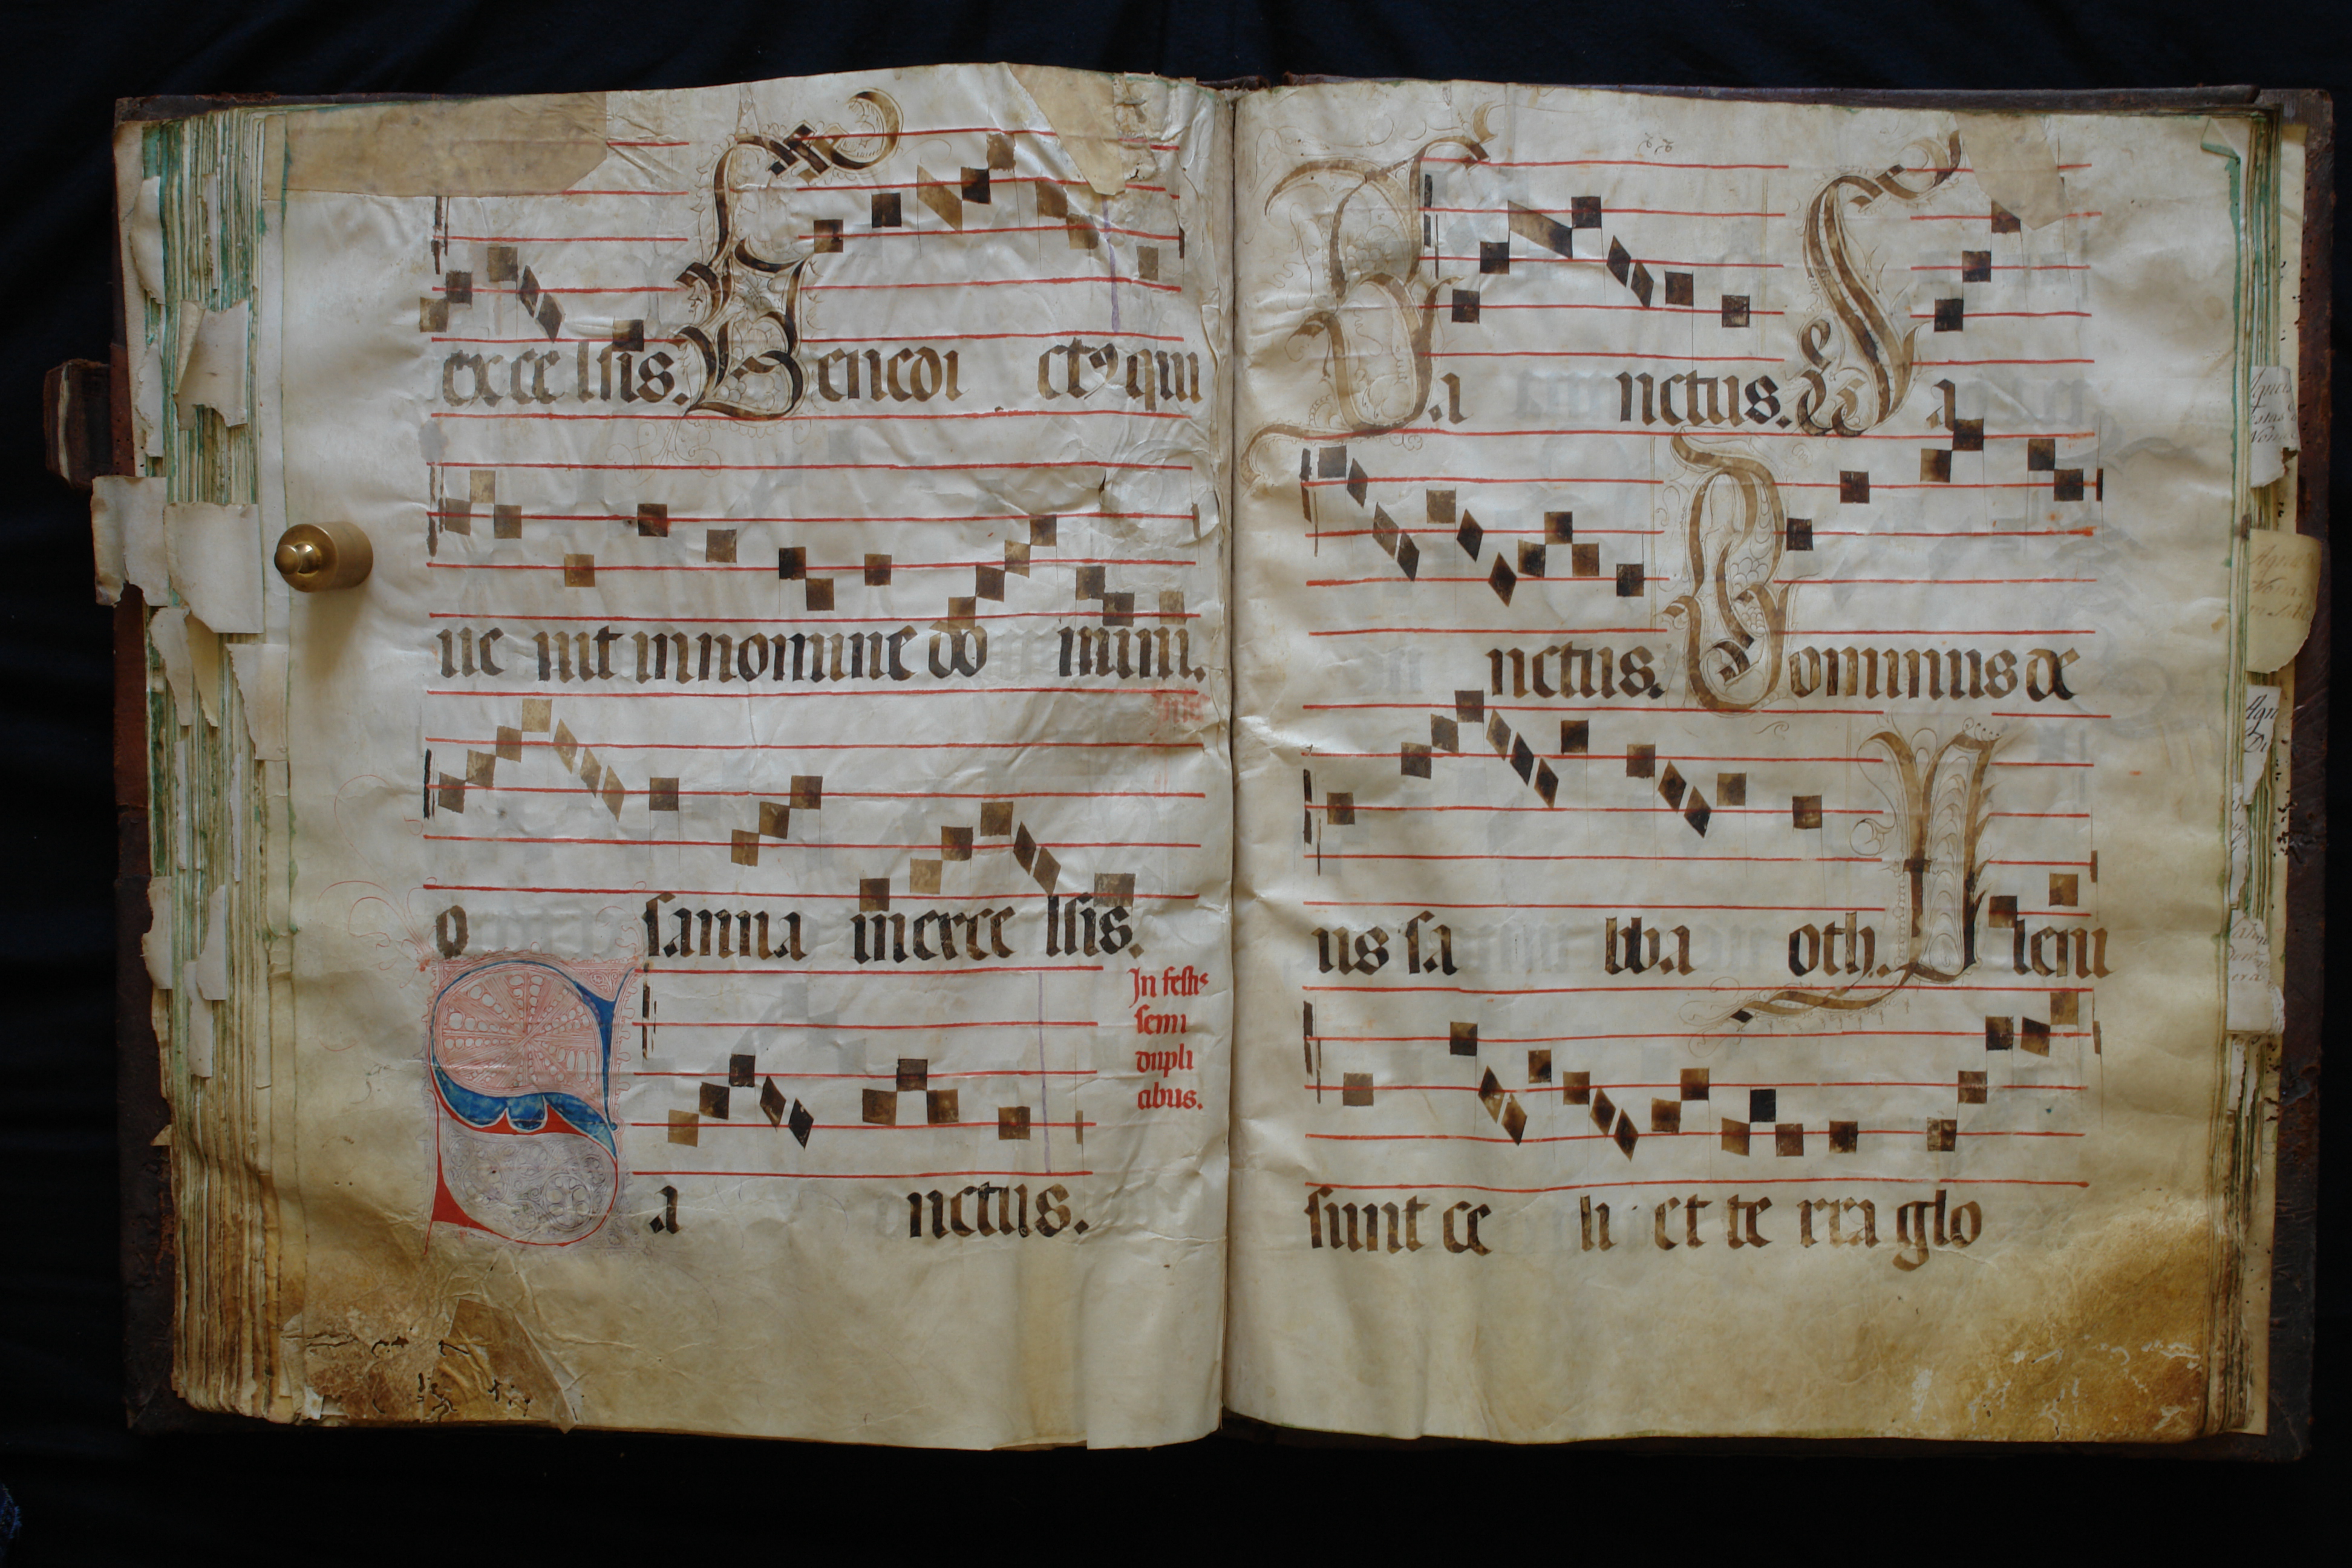 exce lsis. Benedi ctꝰ qui
ue nit in nomine do mini.
o sanna in exce lsis.
In festis
semi
dupli
cibus.
Sa nctus.
Sa nctus. Sa
nctus. Dominus de
us sa bba oth. Pleni
sunt ce li et te rra glo